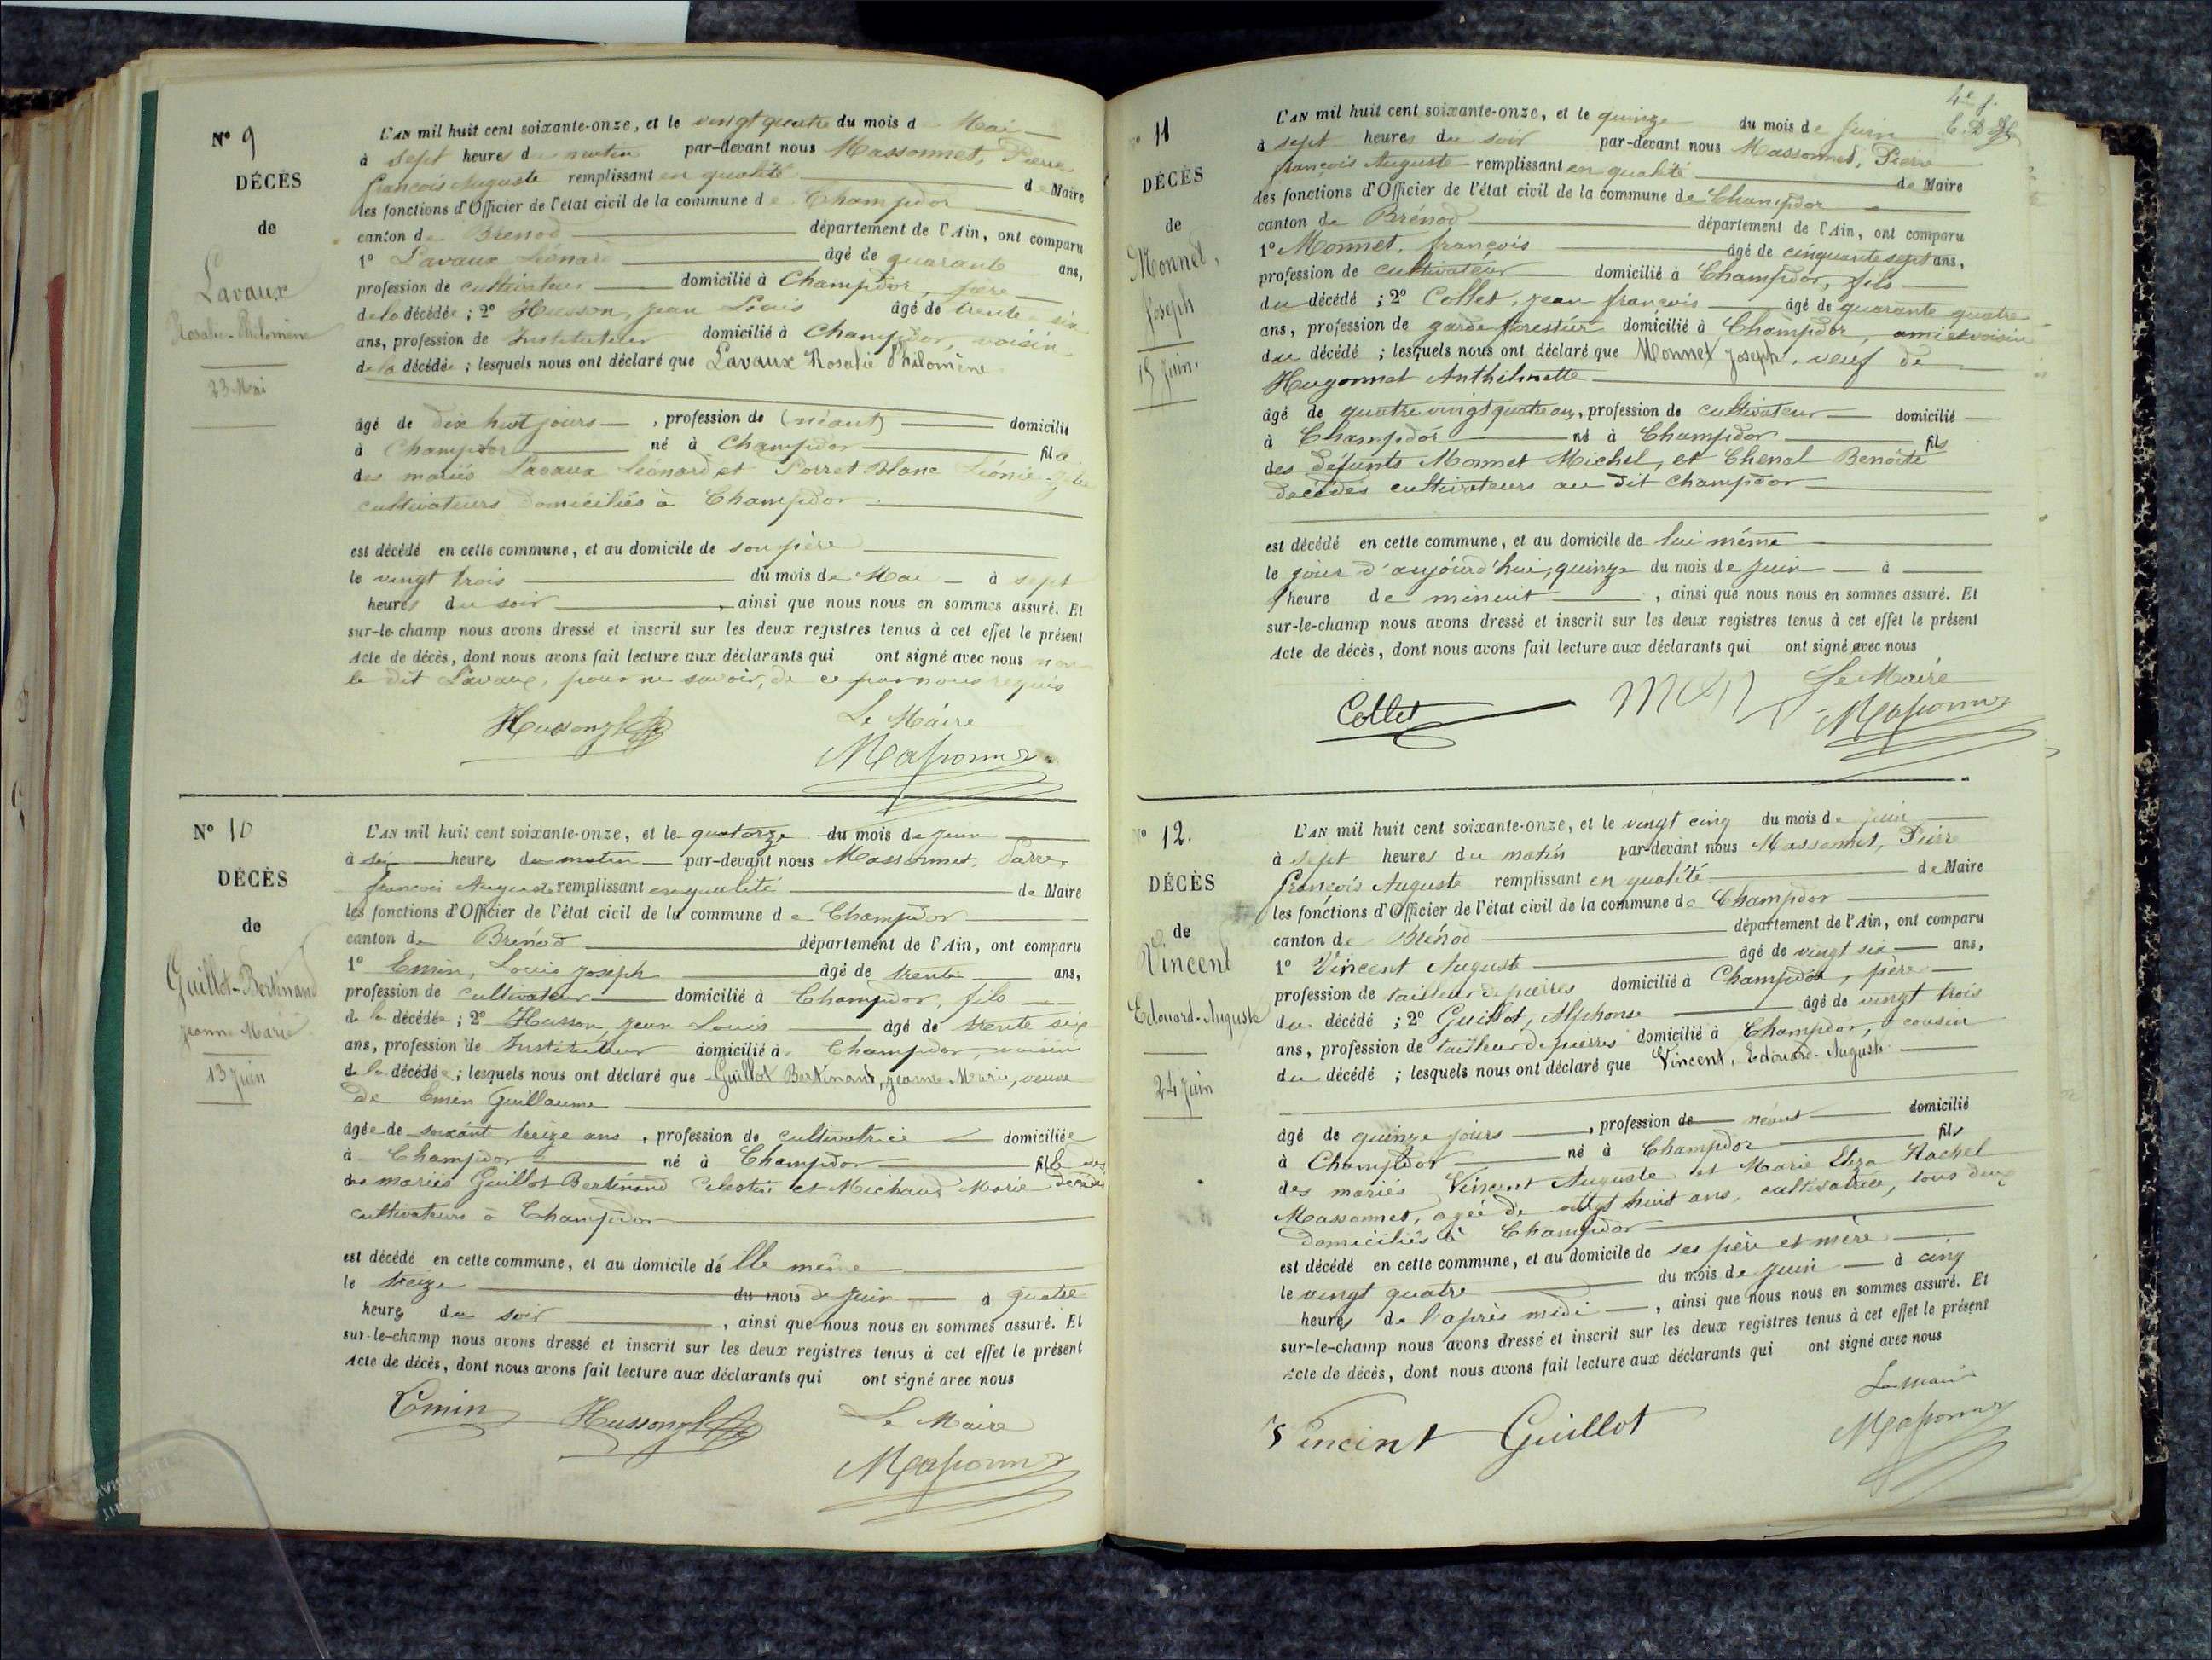 N° 9
DÉCÈS
de
Lavaux
Rosalie-Philomène
23 Mai
L'AN mil huit cent soixante-onze, et le vingt quatre du mois d Mai
à sept heures du matin par-devant nous Massonnet, Pierre
françois Auguste remplissant en qualité de Maire
les fonctions d'Officier de l'état civil de la commune de Champdor
canton de Brenod département de l'Ain, ont comparu
1° Lavaux Léonard âgé de quarante ans,
profession de cultivateur domicilié à Champdor, père
de la décédée ; 2° Husson, jean Louis âgé de trente six
ans, profession de Instituteur domicilié à Champdor, voisin
de la décédée ; lesquels nous ont déclaré que Lavaux Rosalie Philomène
âgé de dix huit jours , profession de (néant) domicilié
à Champdor né à Champdor fille
des mariés Lavaux Léonard et Porret Blanc Léonie
cultivateurs domiciliés à Champdor
est décédé en cette commune, et au domicile de son père
le vingt trois du mois de Mai à sept
heures du soir , ainsi que nous nous en sommes assuré. Et
sur-le-champ nous avons dressé et inscrit sur les deux registres tenus à cet effet le présent
Acte de décès, dont nous avons fait lecture aux déclarants qui ont signé avec nous non
le dit Lavaux, pour ne savoir, de ce par nous requis
Husson jL Le Maire
Massonnet
N° 10
DÉCÈS
de
Guillot-Bertinand
jeanne Marie
13 juin
L'AN mil huit cent soixante-onze, et le quatorze du mois de juin
à six heures du matin par-devant nous Massonnet, Pierre
françois Auguste remplissant en qualité de Maire
les fonctions d'Officier de l'état civil de la commune de Champdor
canton de Brénod département de l'Ain, ont comparu
1° Emin, Louis joseph âgé de trente ans,
profession de cultivateur domicilié à Champdor, fils
de la décédée ; 2° Husson, jean Louis âgé de trente six
ans, profession de Instituteur domicilié à Champdor, voisin
de la décédée ; lesquels nous ont déclaré que Guillot Bertinand, jeanne Marie, veuve
de Emin Guillaume
âgée de soixant treize ans , profession de cultivatrice domiciliée
à Champdor né à Champdor fille des
des mariés Guillot Bertinand Celestin et Michaud Marie décédés
cultivateurs à Champdor
est décédé en cette commune, et au domicile de elle même
le treize du mois de juin à quatre
heures du soir , ainsi que nous nous en sommes assuré. Et
sur-le-champ nous avons dressé et inscrit sur les deux registres tenus à cet effet le présent
Acte de décès, dont nous avons fait lecture aux déclarants qui ont signé avec nous
Emin Husson jL Le Maire
Massonnet
4e f.
N° 11
DÉCÈS
de
Monnet,
joseph
15 juin.
L'AN mil huit cent soixante-onze, et le quinze du mois de juin
à sept heures du soir par-devant nous Massonnet, Pierre
françois Auguste remplissant en qualité de Maire
les fonctions d'Officier de l'état civil de la commune de Champdor
canton de Brénod département de l'Ain, ont comparu
1° Monnet, françois âgé de cinquante sept ans,
profession de cultivateur domicilié à Champdor, fils
du décédé ; 2° Collet, jean françois âgé de quarante quatre
ans, profession de garde forestier domicilié à Champdor, ami et voisin
du décédé ; lesquels nous ont déclaré que Monnet joseph, veuf de
Hugonnet Anthelmette
âgé de quatre vingt quatre ans, profession de cultivateur domicilié
à Champdor né à Champdor fils
des défunts Monnet Michel, et Chenal Benoite
décédés cultivateurs au dit Champdor
est décédé en cette commune, et au domicile de lui même
le jour d'aujourd'hui, quinze du mois de juin à
heure de minuit , ainsi que nous nous en sommes assuré. Et
sur-le-champ nous avons dressé et inscrit sur les deux registres tenus à cet effet le présent
Acte de décès, dont nous avons fait lecture aux déclarants qui ont signé avec nous
Collet Le Maire
Massonnet
N° 12.
DÉCÈS
de
Vincent
Edouard-Auguste
24 juin
L'AN mil huit cent soixante-onze, et le vingt cinq du mois de juin
à sept heures du matin par-devant nous Massonnet, Pierre
françois Auguste remplissant en qualité de Maire
les fonctions d'Officier de l'état civil de la commune de Champdor
canton de Brénod département de l'Ain, ont comparu
1° Vincent Auguste âgé de vingt six ans,
profession de tailleur de pierres domicilié à Champdor, père
du décédé ; 2° Guillot, Alphonse âgé de vingt trois
ans, profession de tailleur de pierres domicilié à Champdor, cousin
du décédé ; lesquels nous ont déclaré que Vincent, Edouard-Auguste
âgé de quinze jours , profession de néant domicilié
à Champdor né à Champdor fils
des mariés Vincent Auguste et Marie Eliza Rachel
Massonnet, agée de vingt huit ans, cultivatrice, tous deux
domiciliés à Champdor
est décédé en cette commune, et au domicile de ses père et mère
le vingt quatre du mois de juin à cinq
heures de l'après midi , ainsi que nous nous en sommes assuré. Et
sur-le-champ nous avons dressé et inscrit sur les deux registres tenus à cet effet le présent
Acte de décès, dont nous avons fait lecture aux déclarants qui ont signé avec nous
Vincent Guillot Le maire
Massonnet